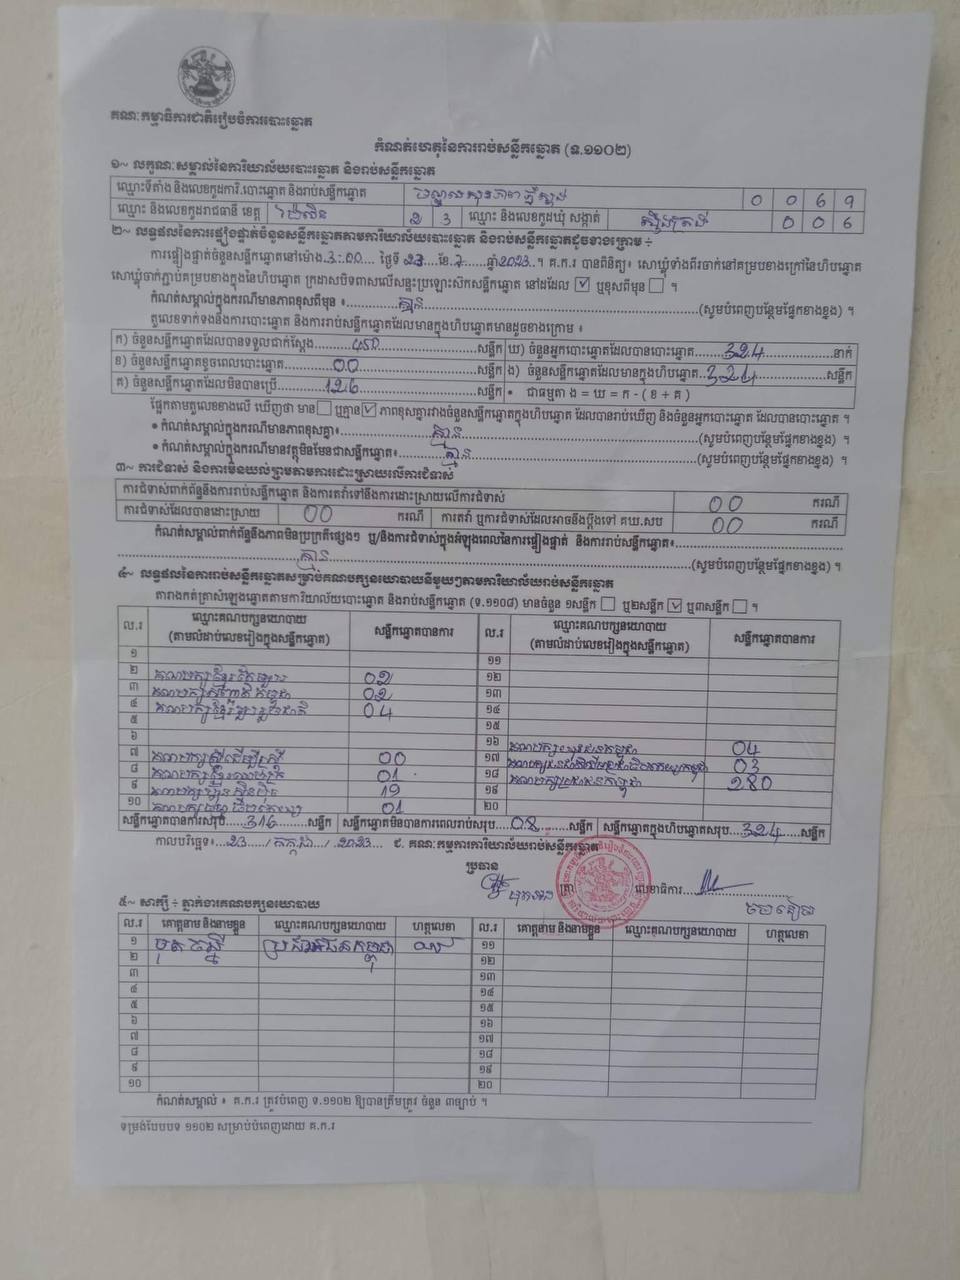 គណៈកម្មាធិការជាតិរៀបចំការបោះឆ្នោត
កំណត់ហេតុនៃការរាប់សន្លឹកឆ្នោត (ទ.១១០២)
១~ លក្ខណៈសម្គាល់នៃការិយាល័យបោះឆ្នោត និងរាប់សន្លឹកឆ្នោត
ឈ្មោះទីតាំង និងលេខកូដការិ.បោះឆ្នោត និងរាប់សន្លឹកឆ្នោត 0 0 6 9
ឈ្មោះ និងលេខកូដរាជធានី ខេត្ត ប៉ៃលិន 2 3 ឈ្មោះ និងលេខកូដឃុំ សង្កាត់ ស្ទឹងត្រង់ 0 0 6
២~ លទ្ធផលនៃការផ្ទៀងផ្ទាត់ចំនួនសន្លឹកឆ្នោតតាមការិយាល័យបោះឆ្នោត និងរាប់សន្លឹកឆ្នោតដូចខាងក្រោម ÷
ការផ្ទៀងផ្ទាត់ចំនួនសន្លឹកឆ្នោតនៅម៉ោង 3:00 ថ្ងៃទី 23 ខែ 7 ឆ្នាំ 2023 ។ គ.ក.រ បានពិនិត្យ៖ សោឃ្លុំទាំងពីរចាក់នៅគម្របខាងក្រៅនៃហិបឆ្នោត
សោឃ្លុំចាក់ភ្ជាប់គម្របខាងក្នុងនៃហិបឆ្នោត ក្រដាសបិទពាសលើសន្ទះប្រឡោះសិកសន្លឹកឆ្នោត នៅដដែល ☑ ឬខុសពីមុន ☐ ។
កំណត់សម្គាល់ក្នុងករណីមានភាពខុសពីមុន ៖ គ្មាន (សូមបំពេញបន្ថែមផ្នែកខាងខ្នង) ។
តួលេខទាក់ទងនឹងការបោះឆ្នោត និងការរាប់សន្លឹកឆ្នោតដែលមានក្នុងហិបឆ្នោតមានដូចខាងក្រោម ៖
ក) ចំនួនសន្លឹកឆ្នោតដែលបានទទួលជាក់ស្តែង 450 សន្លឹក ឃ) ចំនួនអ្នកបោះឆ្នោតដែលបានបោះឆ្នោត 324 នាក់
ខ) ចំនួនសន្លឹកឆ្នោតខូចពេលបោះឆ្នោត 00 សន្លឹក ង) ចំនួនសន្លឹកឆ្នោតដែលមានក្នុងហិបឆ្នោត 324 សន្លឹក
គ) ចំនួនសន្លឹកឆ្នោតដែលមិនបានប្រើ 126 សន្លឹក • ជាធម្មតា ង = ឃ = ក - ( ខ + គ )
ផ្អែកតាមតួលេខខាងលើ ឃើញថា មាន ☐ ឬគ្មាន ☑ ភាពខុសគ្នារវាងចំនួនសន្លឹកឆ្នោតក្នុងហិបឆ្នោត ដែលបានរាប់ឃើញ និងចំនួនអ្នកបោះឆ្នោត ដែលបានបោះឆ្នោត ។
• កំណត់សម្គាល់ក្នុងករណីមានភាពខុសគ្នា៖ គ្មាន (សូមបំពេញបន្ថែមផ្នែកខាងខ្នង) ។
• កំណត់សម្គាល់ក្នុងករណីមានវត្ថុមិនមែនជាសន្លឹកឆ្នោត៖ គ្មាន (សូមបំពេញបន្ថែមផ្នែកខាងខ្នង) ។
៣~ ការជំទាស់ និងការមិនយល់ព្រមតាមការដោះស្រាយលើការជំទាស់
ការជំទាស់ពាក់ព័ន្ធនឹងការរាប់សន្លឹកឆ្នោត និងការតវ៉ាទៅនឹងការដោះស្រាយលើការជំទាស់ 00 ករណី
ការជំទាស់ដែលបានដោះស្រាយ 00 ករណី ការតវ៉ា ឬការជំទាស់ដែលអាចនឹងប្តឹងទៅ គឃ.សប 00 ករណី
កំណត់សម្គាល់ពាក់ព័ន្ធនឹងភាពមិនប្រក្រតីផ្សេងៗ ឬ/និងការជំទាស់ក្នុងអំឡុងពេលនៃការផ្ទៀងផ្ទាត់ និងការរាប់សន្លឹកឆ្នោត៖
គ្មាន (សូមបំពេញបន្ថែមផ្នែកខាងខ្នង) ។
៤~ លទ្ធផលនៃការរាប់សន្លឹកឆ្នោតសម្រាប់គណបក្សនយោបាយនីមួយៗតាមការិយាល័យរាប់សន្លឹកឆ្នោត
តារាងកត់ត្រាសំឡេងឆ្នោតតាមការិយាល័យបោះឆ្នោត និងរាប់សន្លឹកឆ្នោត (ទ.១១០៨) មានចំនួន ១សន្លឹក ☐ ឬ២សន្លឹក ☑ ឬ៣សន្លឹក ☐ ។
ល.រ ឈ្មោះគណបក្សនយោបាយ (តាមលំដាប់លេខរៀងក្នុងសន្លឹកឆ្នោត) សន្លឹកឆ្នោតបានការ ល.រ ឈ្មោះគណបក្សនយោបាយ (តាមលំដាប់លេខរៀងក្នុងសន្លឹកឆ្នោត) សន្លឹកឆ្នោតបានការ
១ ១១
២ គណបក្សខ្មែរ 02 ១២
៣ គណបក្ស កម្ពុជា 02 ១៣
៤ គណបក្សខ្មែររួបរួមជាតិ 04 ១៤
៥ ១៥
៦ ១៦ គណបក្សយុវជនកម្ពុជា 04
៧ គណបក្សស្ត្រីដើម្បីស្ត្រី 00 ១៧ គណបក្ស កម្ពុជា 03
៨ គណបក្សខ្មែរ 01 ១៨ គណបក្សប្រជាជនកម្ពុជា 280
៩ គណបក្សហ្វ៊ុនស៊ិនប៉ិច 19 ១៩
១០ គណបក្ស 01 ២០
សន្លឹកឆ្នោតបានការសរុប 316 សន្លឹក សន្លឹកឆ្នោតមិនបានការពេលរាប់សរុប 08 សន្លឹក សន្លឹកឆ្នោតក្នុងហិបឆ្នោតសរុប 324 សន្លឹក
កាលបរិច្ឆេទ៖ 23 / កក្កដា / 2023 ជ. គណៈកម្មការការិយាល័យរាប់សន្លឹកឆ្នោត
ប្រធាន
ត្រា លេខាធិការ
៥~ សាក្សី ÷ ភ្នាក់ងារគណបក្សនយោបាយ
ល.រ គោត្តនាម និងនាមខ្លួន ឈ្មោះគណបក្សនយោបាយ ហត្ថលេខា ល.រ គោត្តនាម និងនាមខ្លួន ឈ្មោះគណបក្សនយោបាយ ហត្ថលេខា
១ ប្រជាជនកម្ពុជា ១១
២ ១២
៣ ១៣
៤ ១៤
៥ ១៥
៦ ១៦
៧ ១៧
៨ ១៨
៩ ១៩
១០ ២០
កំណត់សម្គាល់ ៖ គ.ក.រ ត្រូវបំពេញ ទ.១១០២ ឱ្យបានត្រឹមត្រូវ ចំនួន ៣ច្បាប់ ។
ទម្រង់បែបបទ ១១០២ សម្រាប់បំពេញដោយ គ.ក.រ